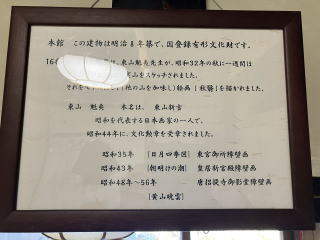 本館　この建物は明治8年築で、国登録有形文化財です。
164　東山魁夷先生が、昭和32年の秋に一週間ほど
山をスケッチされました。
それを　(他の山を加味し)絵画[秋翳]を描かれました。
東山　魁夷　本名は、東山新吉
昭和を代表する日本画家の一人で、
昭和44年に、文化勲章を受章されました。
昭和35年　[日月四季図]　東宮御所障壁画
昭和43年　[朝明けの潮]　皇居新宮殿障壁画
昭和48年～56年　唐招提寺御影堂障壁画
[黄山暁雲]